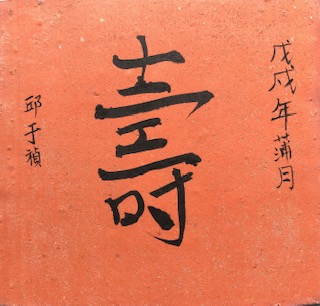 戊戌年蒲月
壽
邱于禎